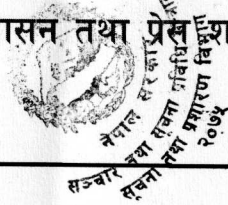 ासन तथा प्रेस श
नेपाल सरकार
सञ्चार तथा सूचना प्रविधि
सूचना तथा प्रशारण विभाग
२०७५